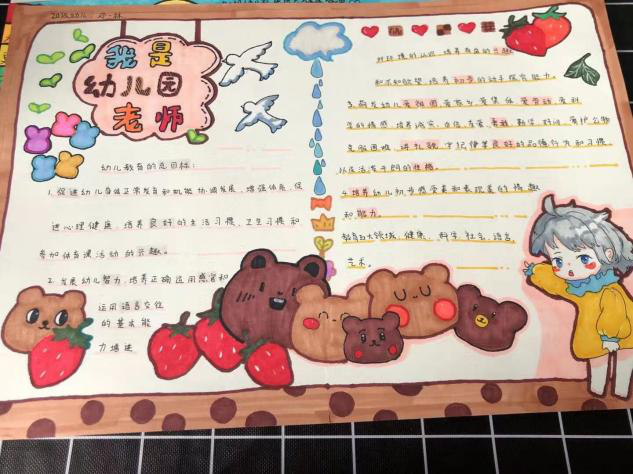 我是
幼儿园
老师
幼儿教育的总目标:
1.促进幼儿身体正常发育和机能协调发展、增强体质、促
进心理健康、培养良好的生活习惯、卫生习惯和
参加体育活动的兴趣。
2.发展幼儿智力、培养正确运用感官和
运用语言交往
的基本能
力增进
对环境的认识、培养有益的兴趣
和求知欲望、培养初步的动手探究能力。
3.萌发幼儿爱祖国、爱家乡、爱集体、爱劳动、爱科
学的情感、培养诚实、自信、友爱、勇敢、勤学、好问、爱护公物
克服困难、讲礼貌、守纪律等良好的品德行为和习惯、
以及活泼开朗的性格。
4.培养幼儿初步感受美和表现美的情趣
和能力。
教育五大领域、健康、科学、社会、语言、
艺术。